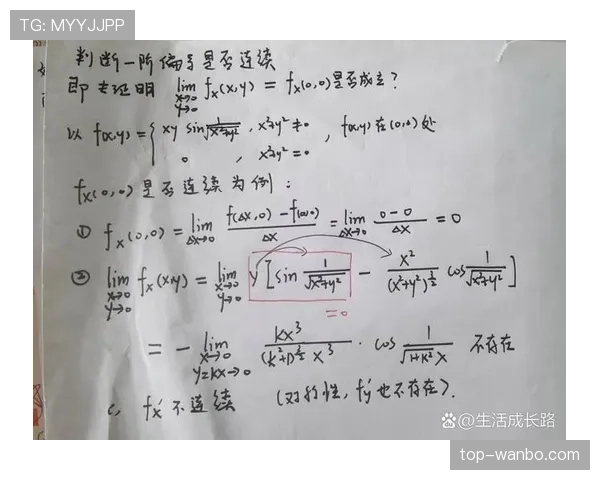 TG: MYYJJPP
判断一阶偏导是否连续
即去证明 lim x→0 y→0 fx(x,y) = fx(0,0)是否成立?
以 f(x,y) = { xy sin 1/√(x²+y²) , x²+y² ≠ 0
0 , x²+y² = 0 , f(x,y)在(0,0)处
fx(0,0)是否连续为例:
① fx(0,0) = lim Δx→0 (f(Δx,0) - f(0,0))/Δx = lim Δx→0 (0-0)/Δx = 0
② lim x→0 y→0 fx(x,y) = lim x→0 y→0 y [ sin 1/√(x²+y²) - x²/(x²+y²)^(3/2) cos 1/√(x²+y²) ]
=0
= - lim x→0 y=kx→0 kx³/((k²+1)^(3/2) x³) · cos 1/(√(1+k²) x) 不存在
fx' 不连续 (对称性, fy'也不存在).
@生活成长路
top-wanbo.com